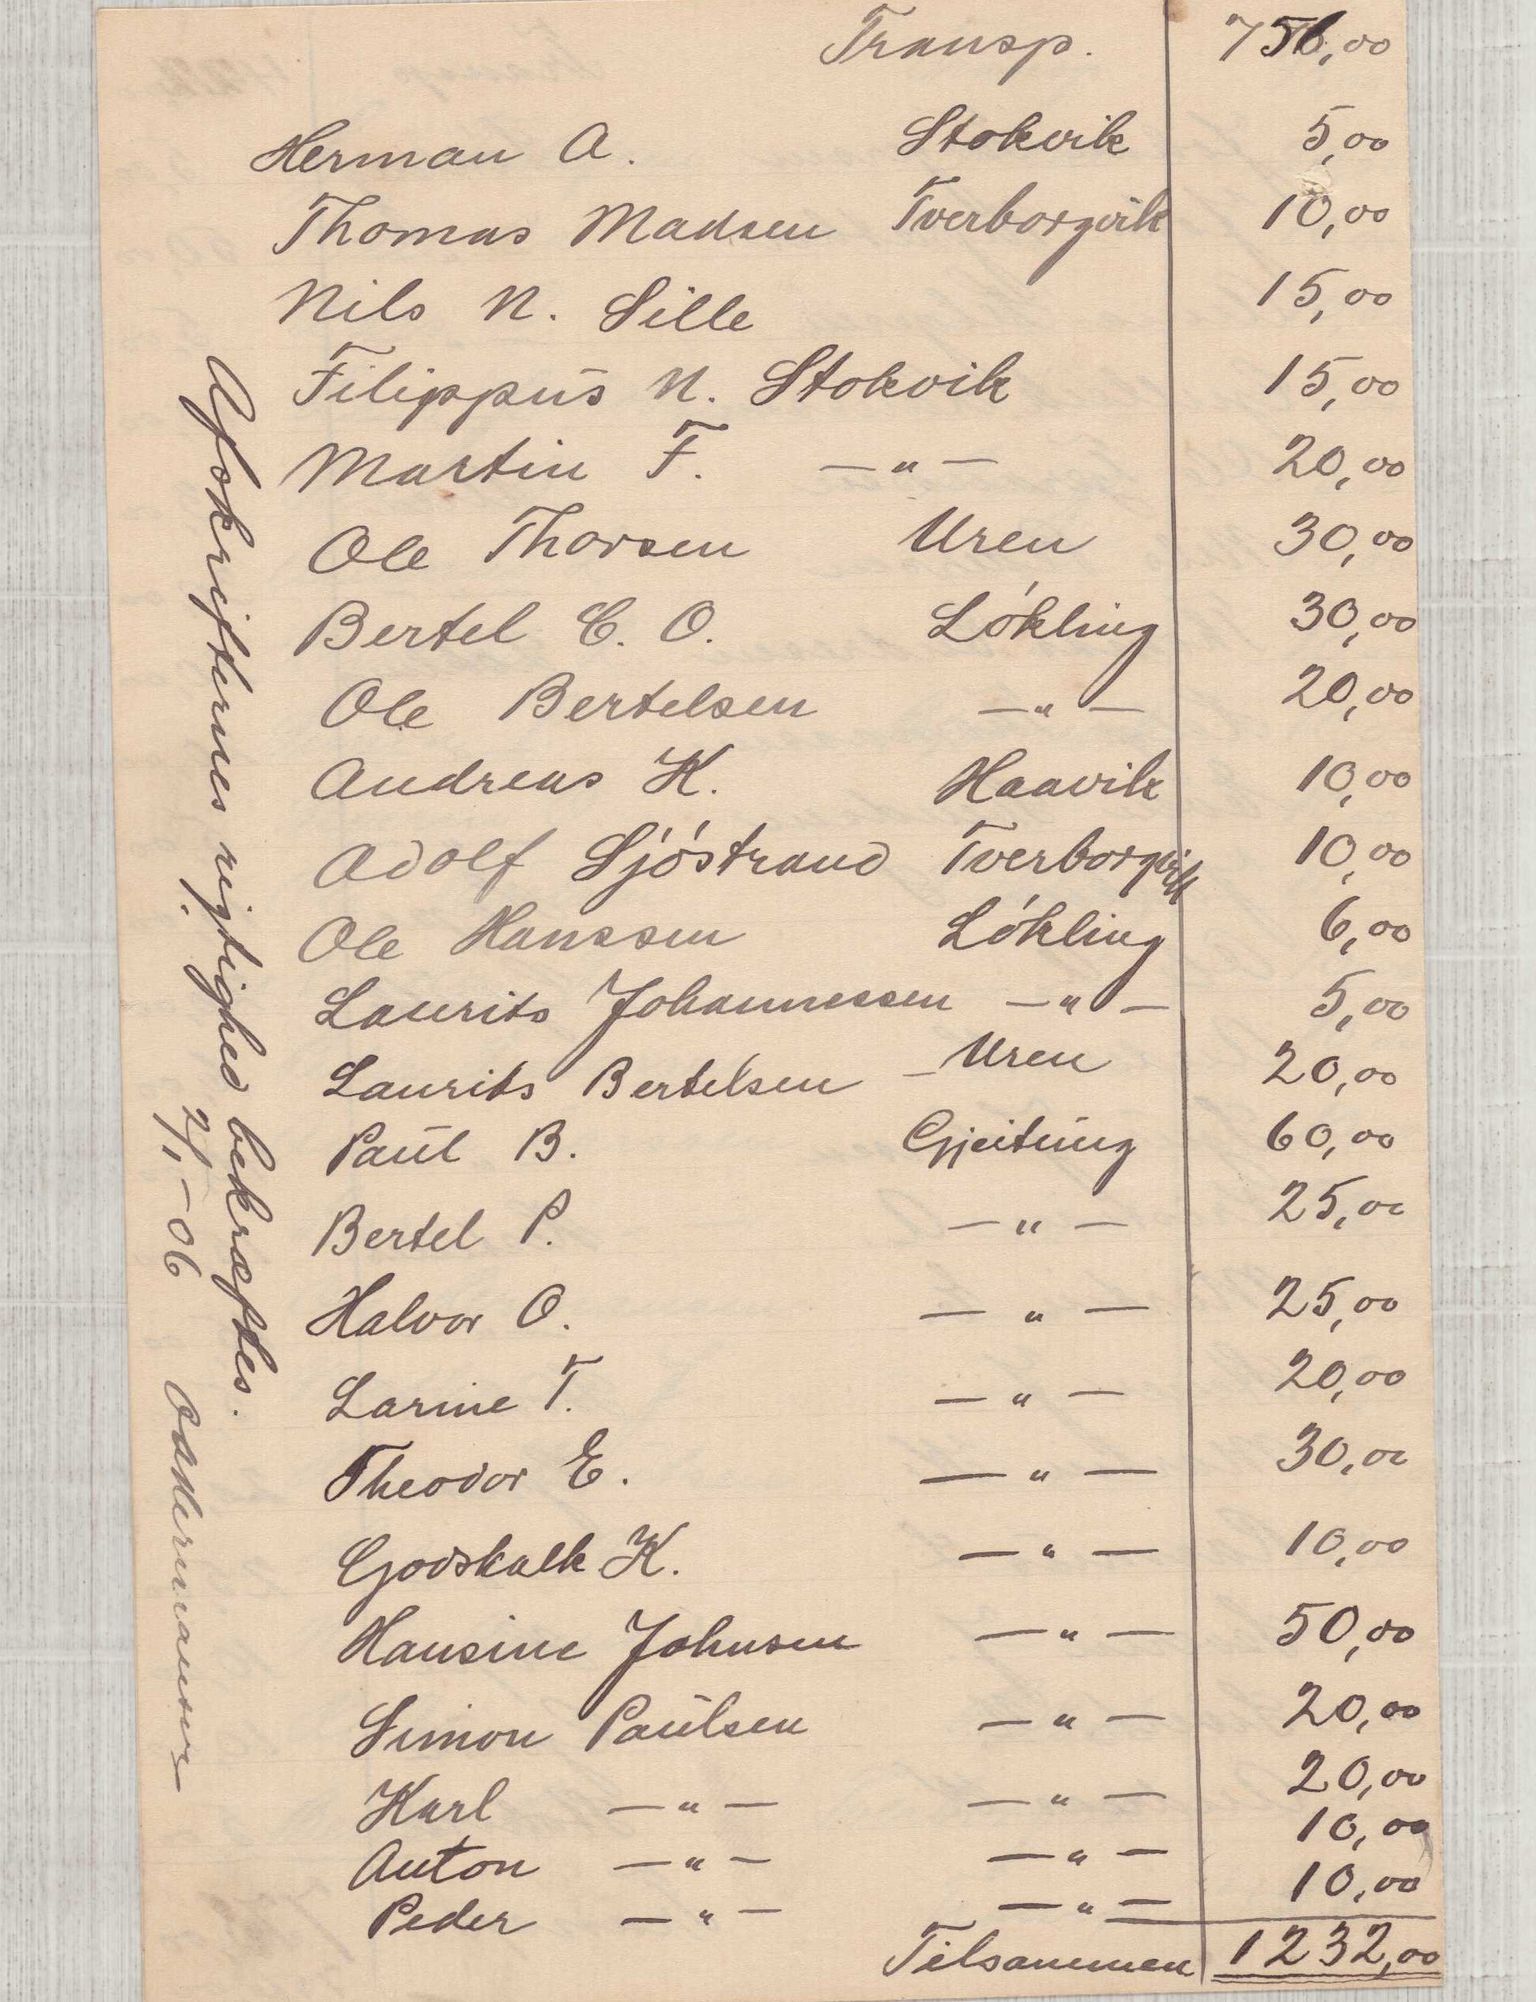 Transp. 756,00
Herman A. Stokvik 5,00
Thomas Madsen Tverborgvik 10,00
Nils N. Sille 15,00
Filippus N. Stokvik 15,00
Martin F. —"— 20,00
Ole Thorsen Uren 30,00
Bertel C. O. Lökling 30,00
Ole Bertelsen —"— 20,00
Andreas K. Haavik 10,00
Adolf Sjöstrand Tverborgvik 10,00
Ole Hanssen Lökling 6,00
Laurits Johannessen —"— 5,00
Laurits Bertelsen — Uren 20,00
Paul B. Gjeitung 60,00
Bertel P. —"— 25,00
Halvor O. —"— 25,00
Larine T. —"— 20,00
Theodor E. —"— 30,00
Godskalk K. —"— 10,00
Hansine Johnsen —"— 50,00
Simon Paulsen —"— 20,00
Karl —"— —"— 20,00
Anton —"— —"— 10,00
Peder —"— —"— 10,00
Tilsammen 1232,00
Afskrifternes rigtighed bekræftes.
2/1-06